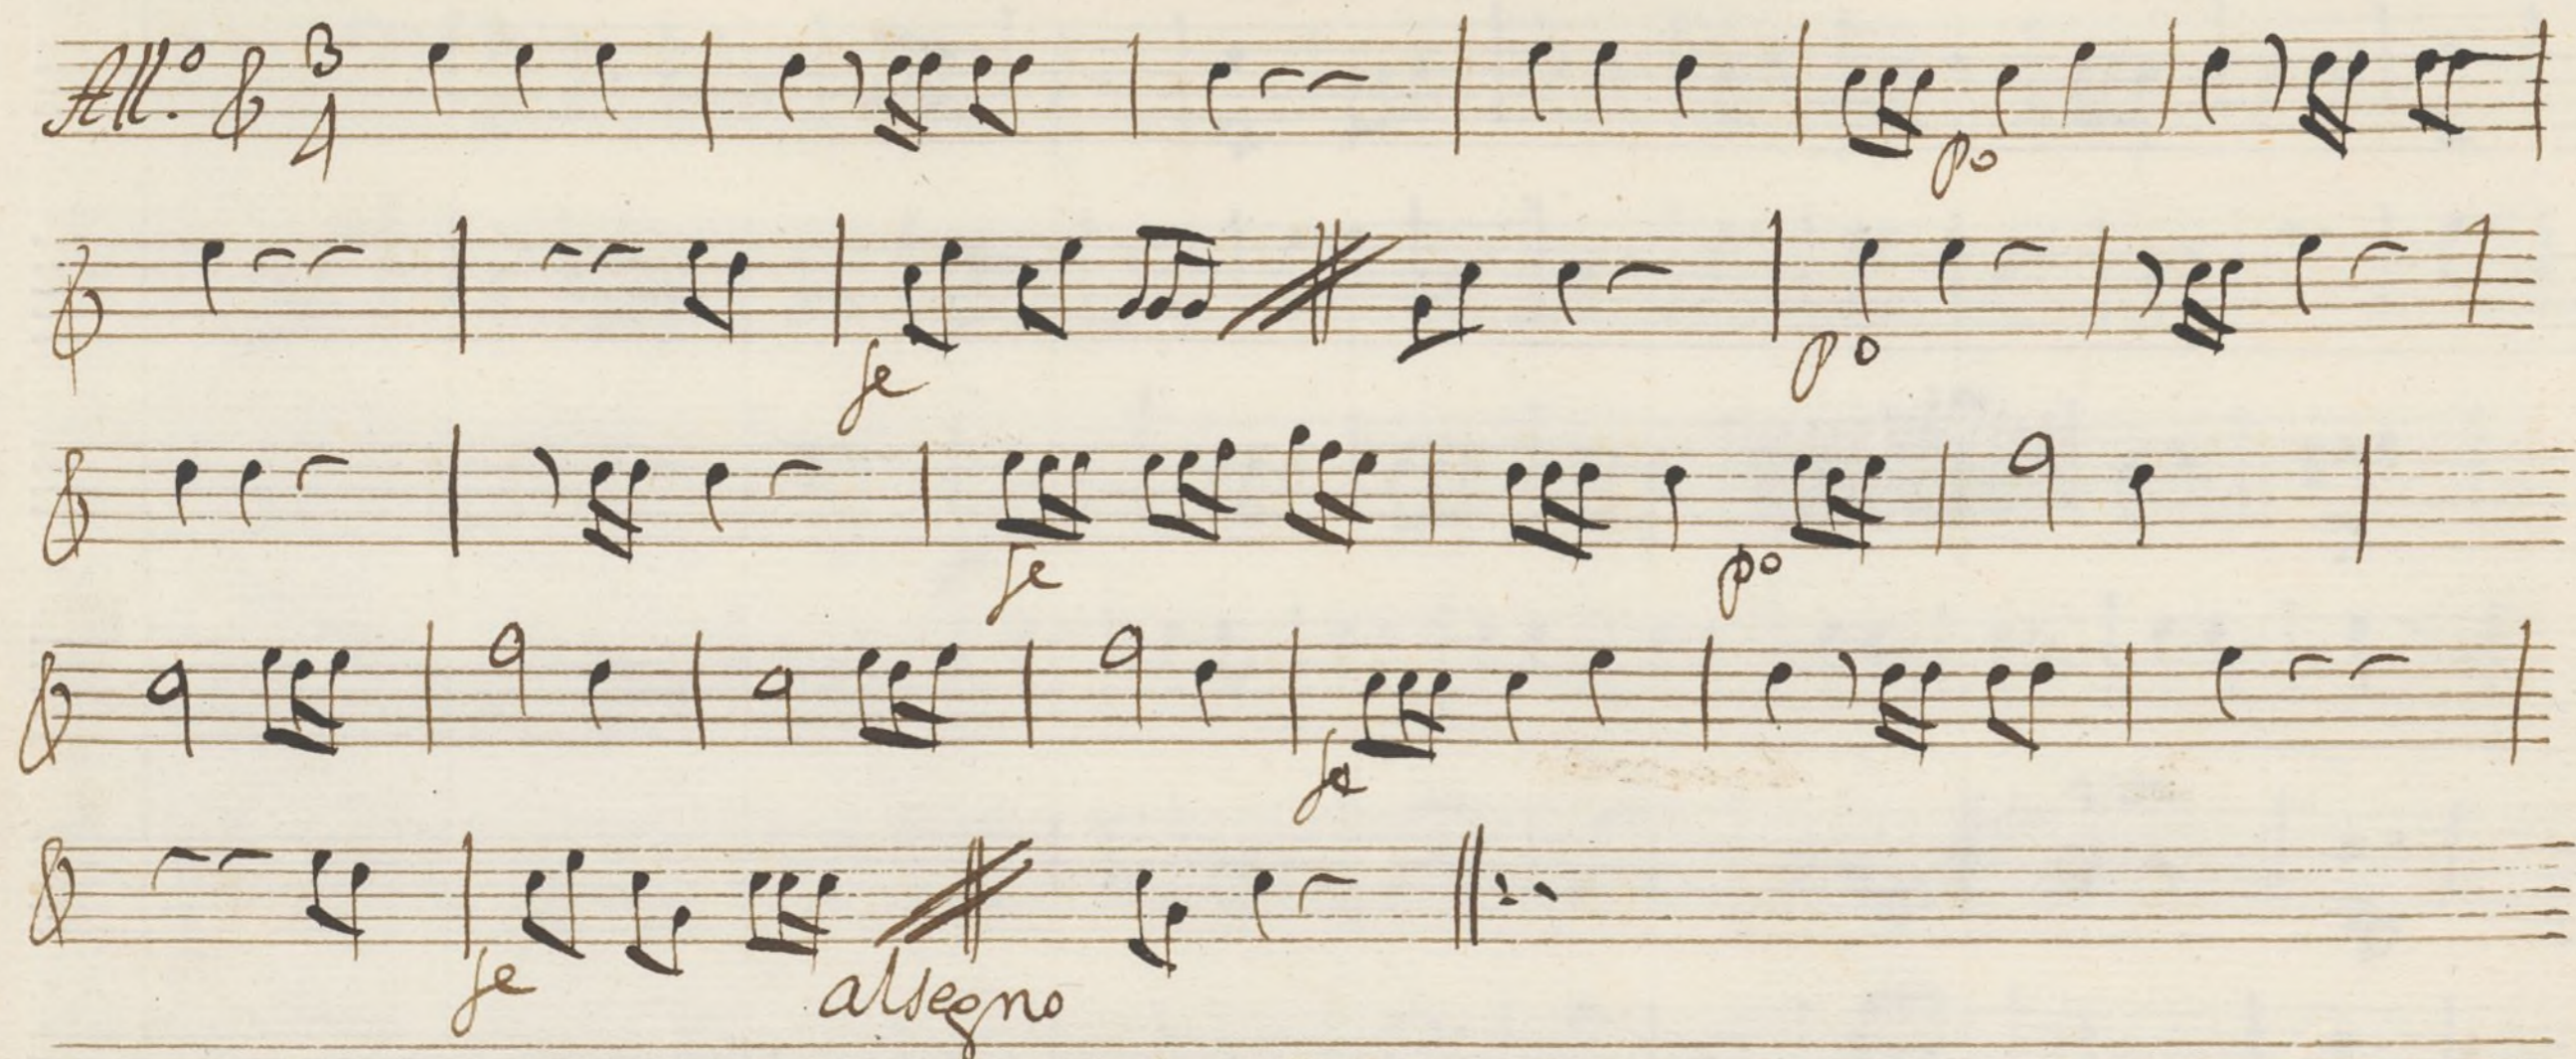 All.º 3 4
po
fe po
fe po
fe
fe alsegno